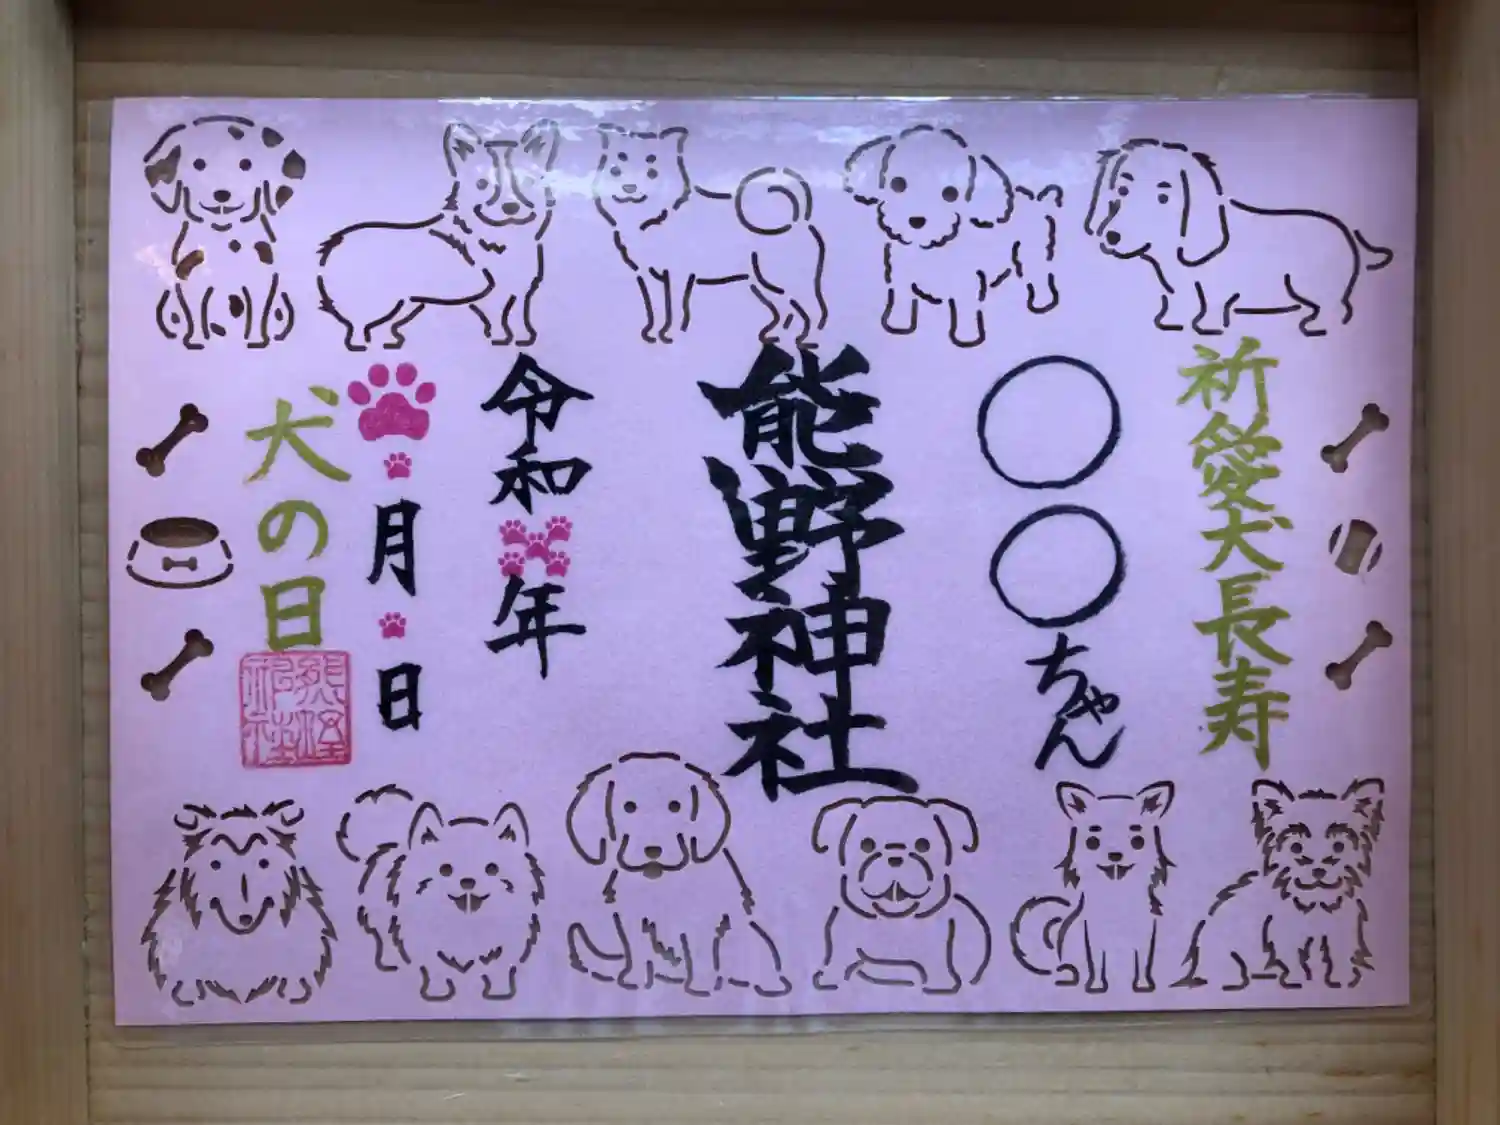 祈愛犬長寿
〇〇ちゃん
熊野神社
令和年
月日
犬の日
熊野神社